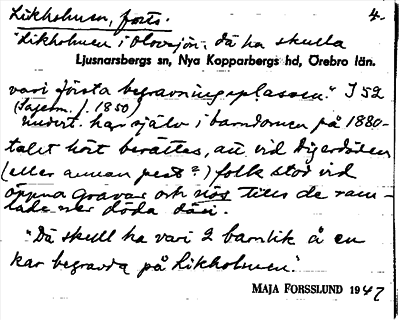 Likholmen, forts. 4.
"Likholmen i Olovsjön. Då ha skulla
Ljusnarsbergs sn, Nya Kopparbergs hd, Örebro län.
vari första begravningsplassen." I 52
(Sagesm. f. 1850)
Undert. har själv i barndomen på 1880-
talet hört berättas, att vid digerdöden
(eller annan pest?) folk stod vid
öppna gravar och nös tills de ram-
lade ner döda däri.
"Då skull ha vari 2 barnlik å en
kar begravda på Likholmen."
MAJA FORSSLUND 1947